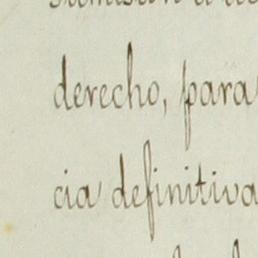 derecho, para
cia definitiva